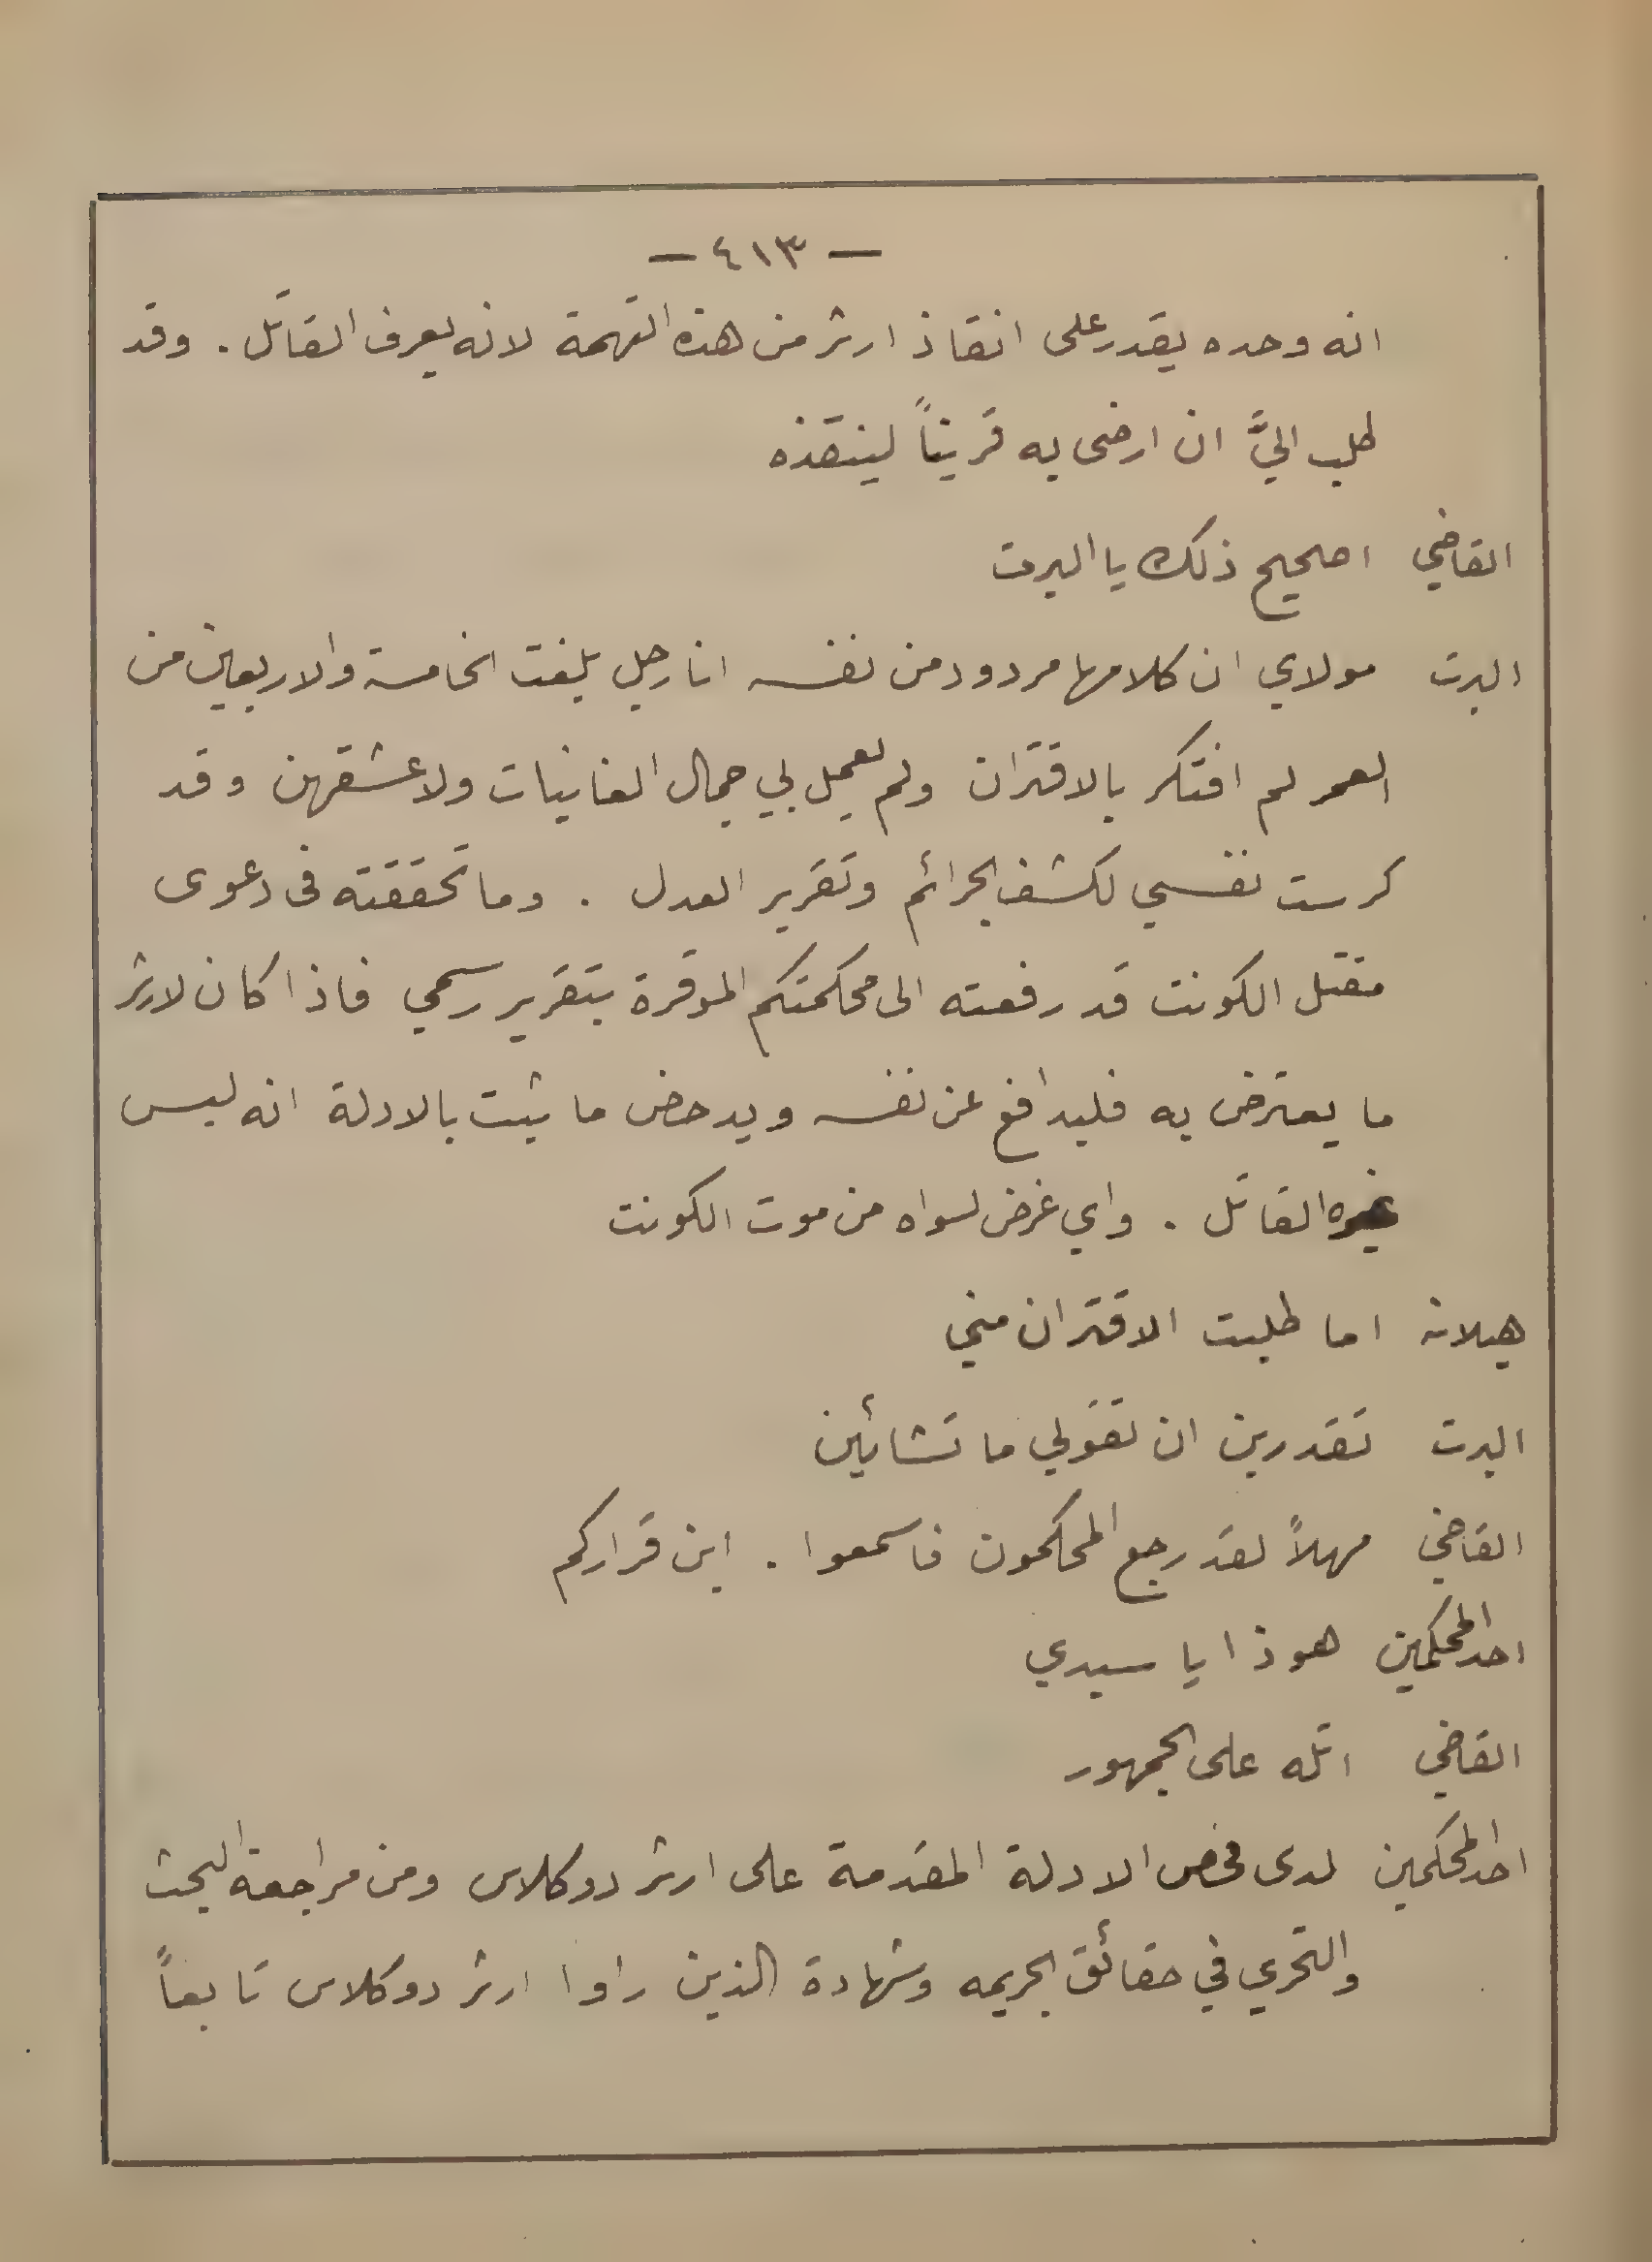 — ٤١٣ —
انه وحده يقدر على انقاذ ارثر من هذه التهمة لانه يعرف القاتل . وقد
طلب اليَّ ان ارضى به قريناً لينقذه
القاضي اصحيح ذلك يا البرت
البرت مولاي ان كلامها مردود من نفسه انا رجل بلغت الخامسة والاربعين من
العمر لم افتكر بالاقتران ولم يعمل بي جمال الغانيات ولا عشقهن وقد
كرست نفسي لكشف الجرائم وتقرير العدل . وما تحققته فى دعوى
مقتل الكونت قد رفعته الى محكمتكم الموقرة بتقرير رسمي فاذا كان لارثر
ما يعترض به فليدافع عن نفسه ويدحض ما يثبت بالادلة انه ليس
غيره القاتل . واي غرض لسواه من موت الكونت
هيلانه اما طلبت الاقتران مني
البرت تقدرين ان تقولي ما تشائين
القاضي مهلاً لقد رجع المحكمون فاسمعوا . اين قراركم
احد المحكمين هوذا يا سيدي
القاضي اتله على الجمهور
احد المحكمين لدى فحص الادلة المقدمة على ارثر دوكلاس ومن مراجعة البحث
والتحري في حقائق الجريمه وشهادة الذين راوا ارثر دوكلاس تابعاً